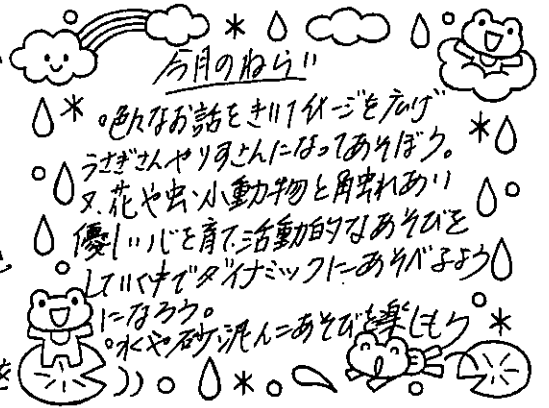 今月のねらい
○色んなお話をきいてイメージを広げ
うさぎさんやりすさんになってあそぼう。
又、花や虫、小動物と触れあい
優しい心を育て、活動的なあそびを
していく中でダイナミックにあそべるよう
になろう。
○水や砂、泥んこあそびを楽しもう